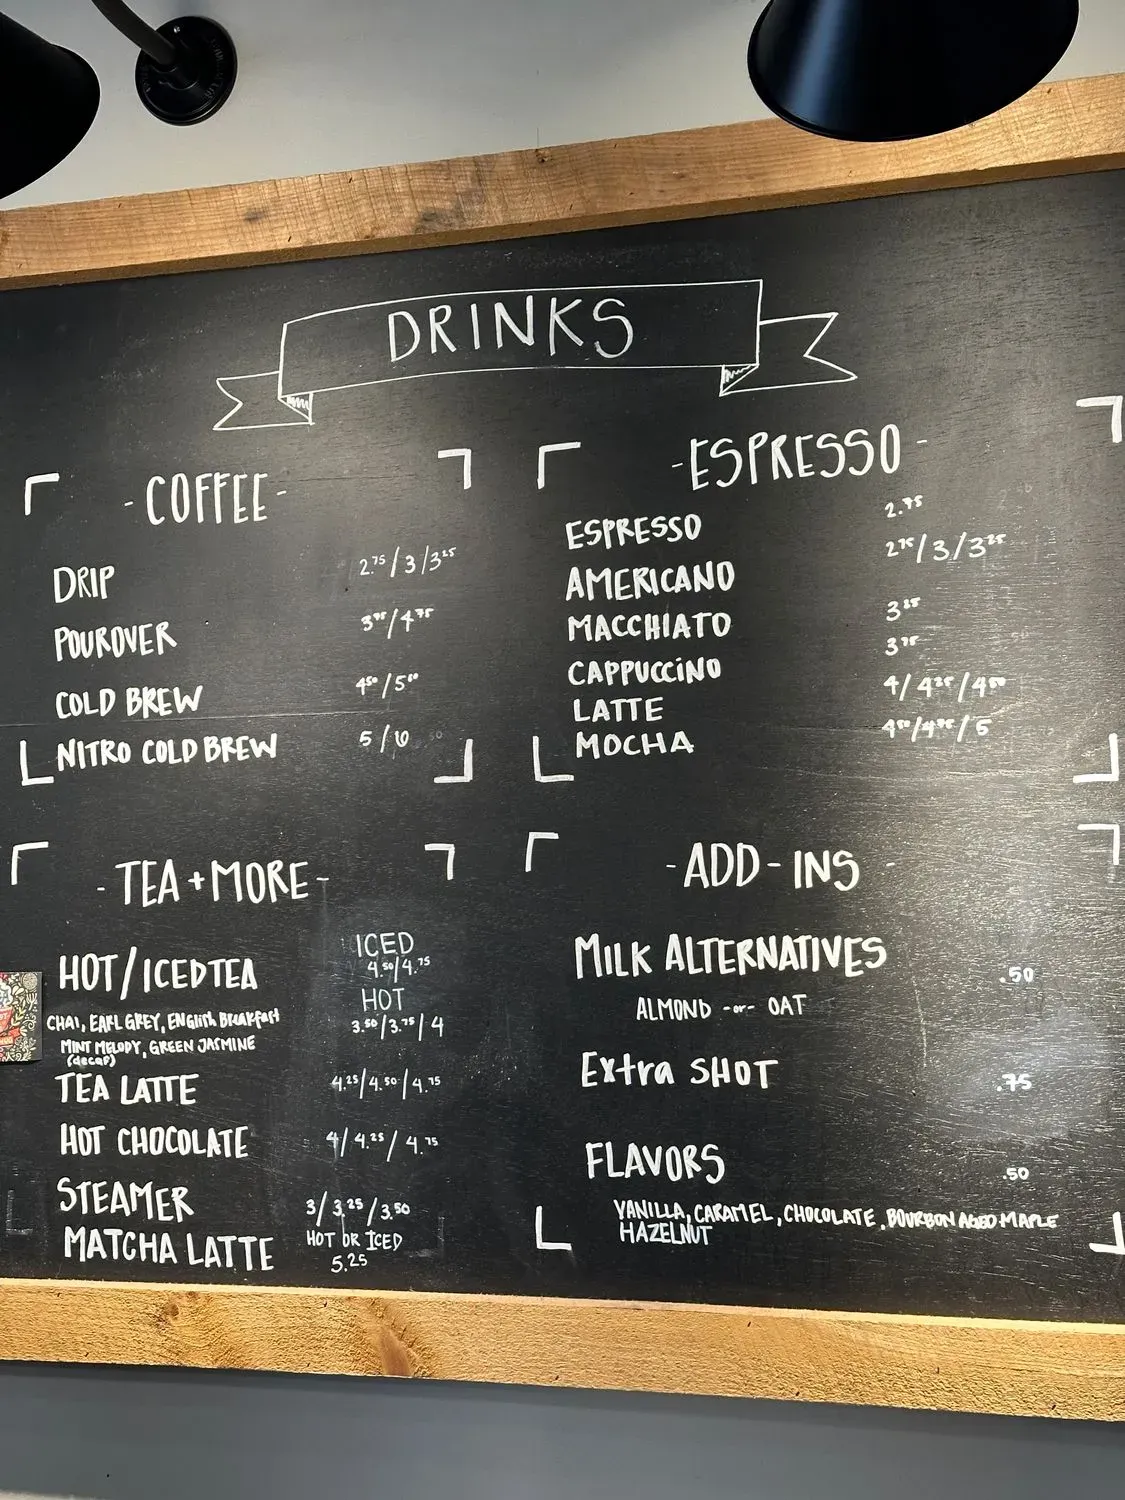 DRINKS
- COFFEE -
DRIP 2.75 / 3 / 3 25
POUROVER 3 75 / 4 75
COLD BREW 4 50 / 5 00
NITRO COLD BREW 5 / 6
- ESPRESSO -
ESPRESSO 2.75
AMERICANO 2 75 / 3 / 3 25
MACCHIATO 3 25
CAPPUCCiNO 3 75
LATTE 4 / 4 25 / 4 50
MOCHA 4 50 / 4 75 / 5
- TEA + MORE -
HOT / ICED TEA ICED
4.50/4.75
HOT
3.50/3.75/4
CHAI, EARL GREY, ENGlish BreaKfast
MINT MELODY, GREEN JASMINE
(decaf)
TEA LATTE 4.25/4.50/4.75
HOT CHOCOLATE 4 / 4.25 / 4.75
STEAMER 3 / 3.25 / 3.50
MATCHA LATTE HOT OR ICED
5.25
- ADD - INS -
MILK ALTERNATIVES .50
ALMOND -or- OAT
Extra SHOT .75
FLAVORS .50
VANILLA, CARAMEL, CHOCOLATE, BOURBON AGED MAPLE
HAZELNUT